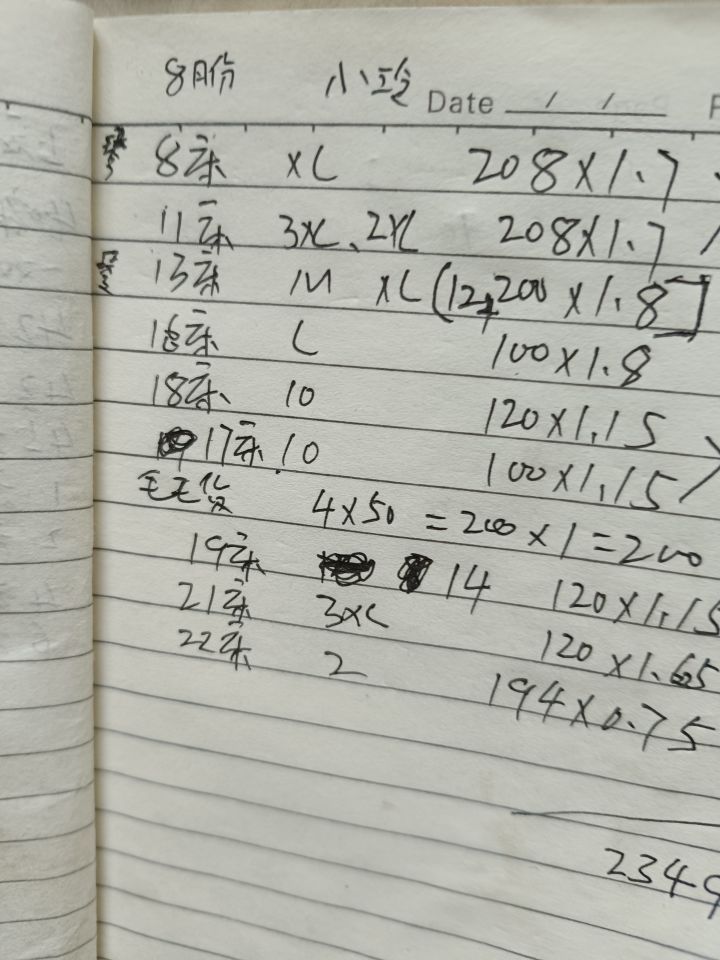 8月份 小玲 Date / /
8号 XL 208×1.7
11号 3XL、2XL 208×1.7
13号 M XL(12, 200×1.8]
16号 L 100×1.8
18号、 10 120×1.15
17号. 10 100×1.15
毛毛货 4×50=200×1=200
19号 14 120×1.15
21号 3XL 120×1.65
22号 2 194×0.75
2349